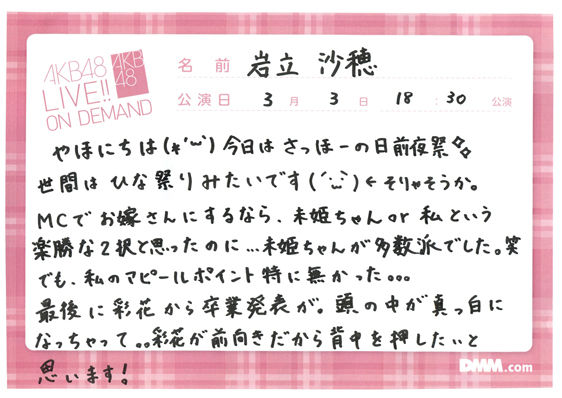 AKB48
LIVE!!
ON DEMAND
AKB
48
名前 岩立 沙穂
公演日 3月 3日 18:30 公演
やほにちは(*'ω')今日は さっほーの日前夜祭
世間は ひな祭りみたいです(´ω`)←そりゃそうか。
MCで お嫁さんにするなら、未姫ちゃん or 私という
楽勝な2択と思ったのに…未姫ちゃんが多数派でした。笑
でも、私のアピールポイント特に無かった。。。
最後に彩花から卒業発表が。頭の中が真っ白に
なっちゃって。。彩花が前向きだから背中を押したいと
思います!
DMM.com